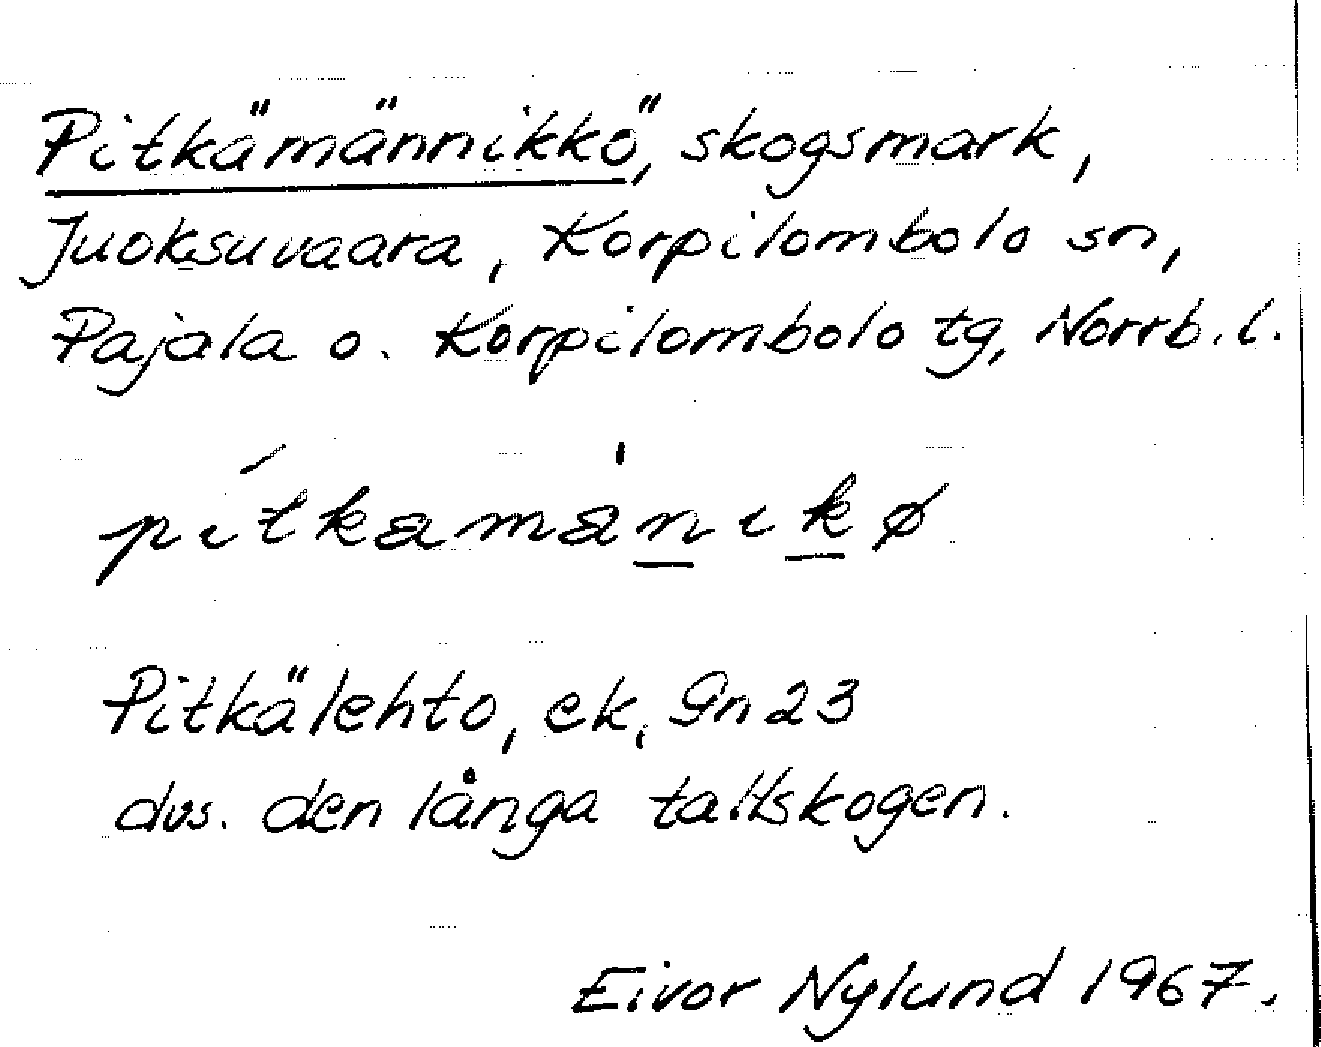 Pitkämännikkö, skogsmark,
Juoksuvaara, Korpilombolo sn,
Pajala o. Korpilombolo tg, Norrb. l.
pitkamänikø
Pitkälehto, ek, Gn 23
dvs. den långa tallskogen.
Eivor Nylund 1967.